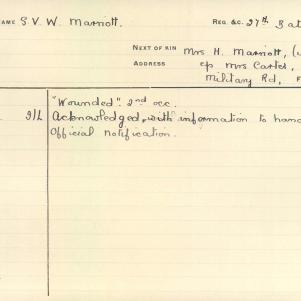 NAME S. V. W. Marriott. REG. &C. 27th Bat
NEXT OF KIN Mrs H. Marriott, (
ADDRESS c/o Mrs Carter,
Military Rd, F
"Wounded". 2nd occ.
Acknowledged, with information to hand
Official notification.